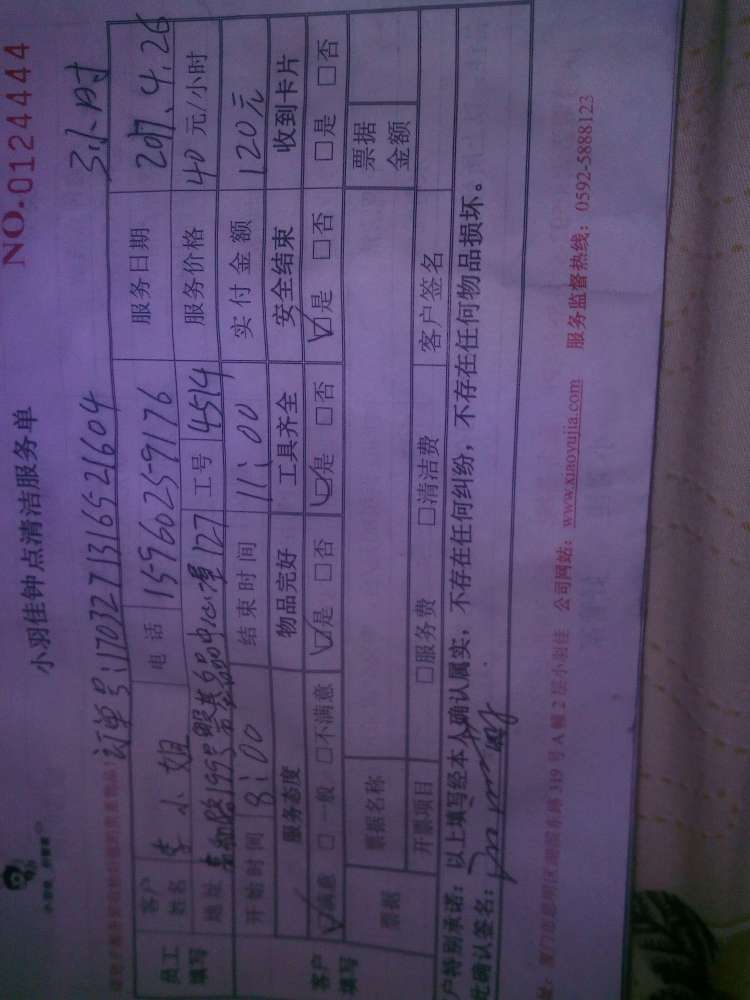 NO.0124444
小羽佳钟点清洁服务单
订单号:1703271316521604 3小时
员工填写 客户姓名 李小姐 电话 15960259176 服务日期 2017.4.26
地址 199号 127 工号 4514 服务价格 40元/小时
开始时间 8:00 结束时间 11:00 实付金额 120元
客户填写 服务态度 物品完好 工具齐全 安全结束 收到卡片
☑满意 □一般 □不满意 ☑是 □否 ☑是 □否 ☑是 □否 □是 □否
票据 票据名称 票据金额
开票项目 □服务费 □清洁费 客户签名
户特别承诺:以上填写经本人确认属实,不存在任何纠纷,不存在任何物品损坏。
此确认签名:
址:厦门市思明区湖滨东路319号A幢2层小羽佳 公司网站:www.xiaoyujia.com 服务监督热线:0592-5888123